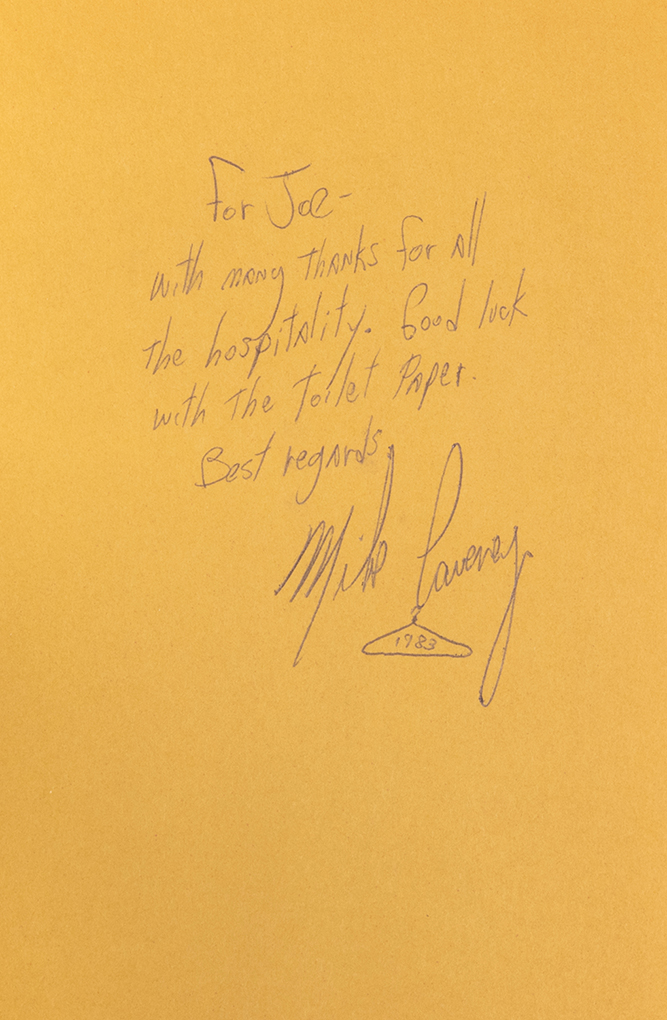 For Joe-
with many thanks for all
the hospitality. Good luck
with The Toilet Paper.
Best regards,
Mike Caveney
1983